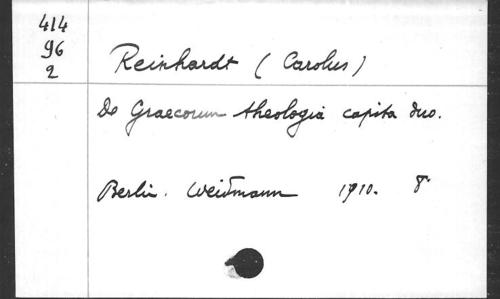 414
96
2
Reinhardt (Carolus)
De Graecorum theologia capita duo.
Berlin. Weidmann 1910. 8°